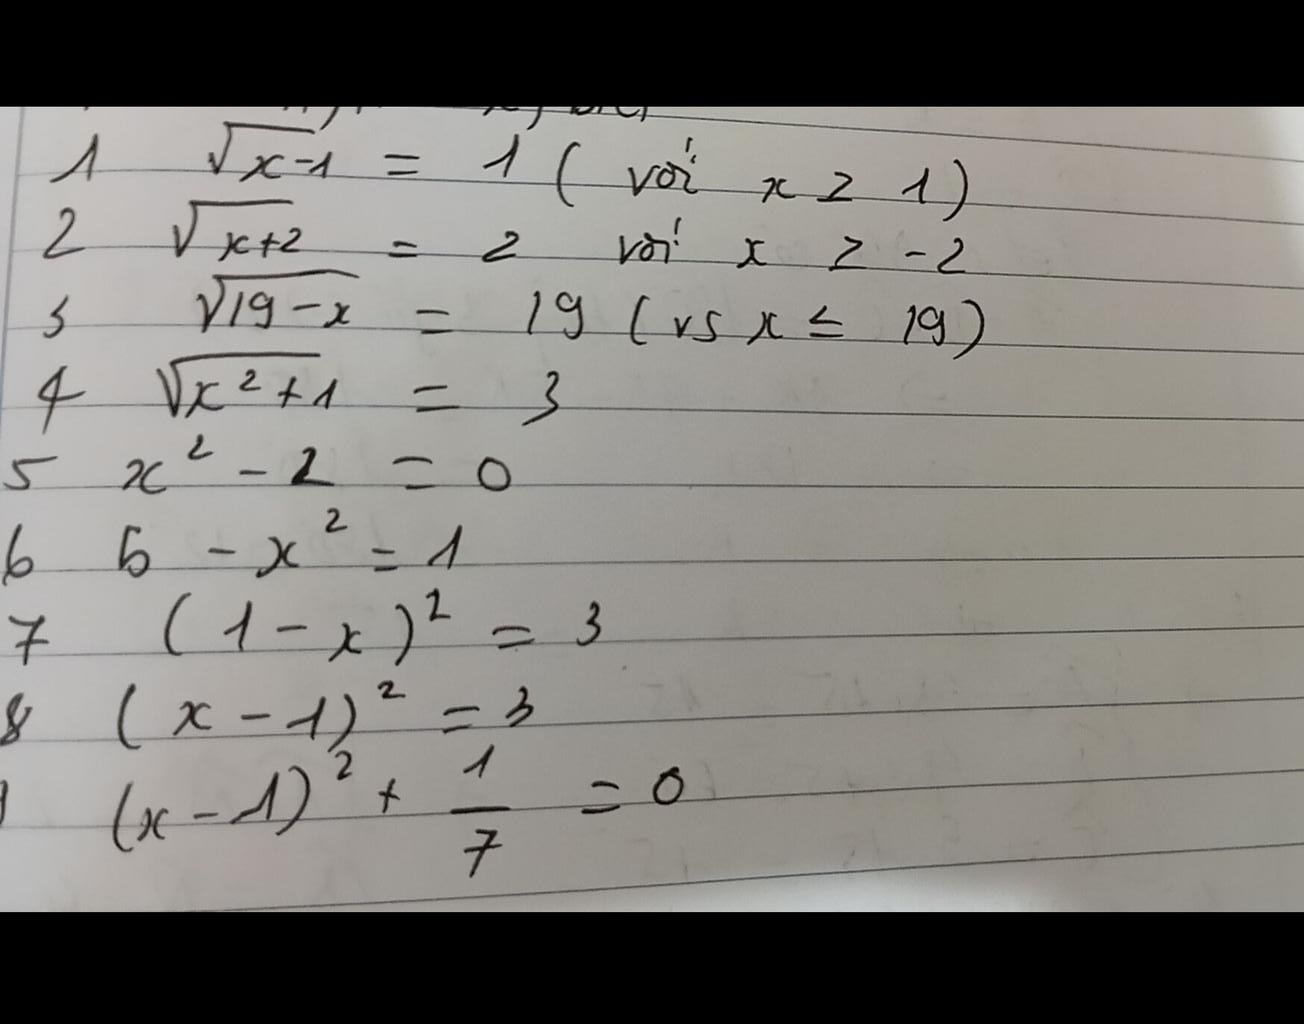 1 √x-1 = 1 ( với x ≥ 1)
2 √x+2 = 2 với x ≥ -2
3 √19-x = 19 ( vs x ≤ 19)
4 √x²+1 = 3
5 x² - 2 = 0
6 5 - x² = 1
7 ( 1 - x )² = 3
8 ( x - 1)² = 3
(x - 1)² + 1/7 = 0